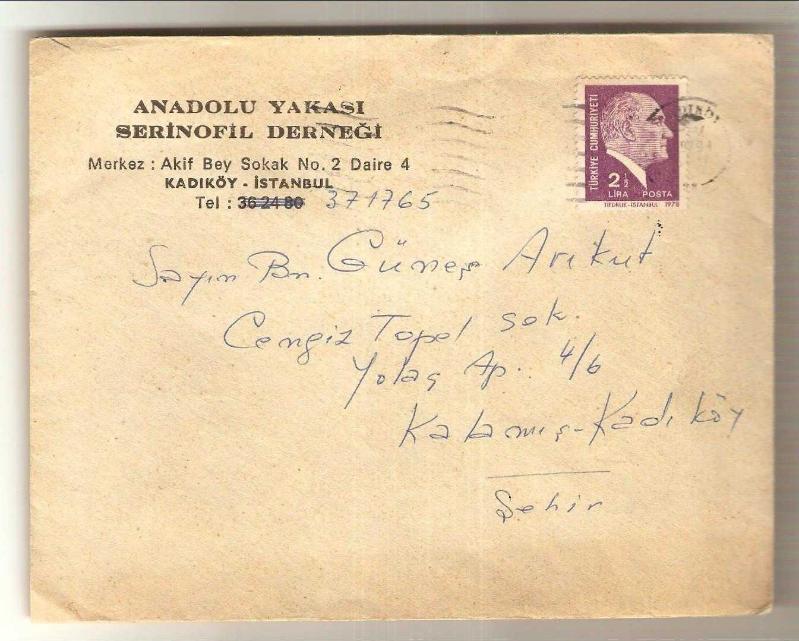 ANADOLU YAKASI
SERİNOFİL DERNEĞİ
Merkez : Akif Bey Sokak No. 2 Daire 4
KADIKÖY - İSTANBUL
Tel : 36 24 80 371765
TÜRKİYE CUMHURİYETİ
2 1/2
LİRA POSTA
TİFDRUK-İSTANBUL 1978
Sayın Bn. Güneş Arıkut
Cengiz Topel sok.
Yolaç Ap. 4/6
Kalamış-Kadıköy
Şehir